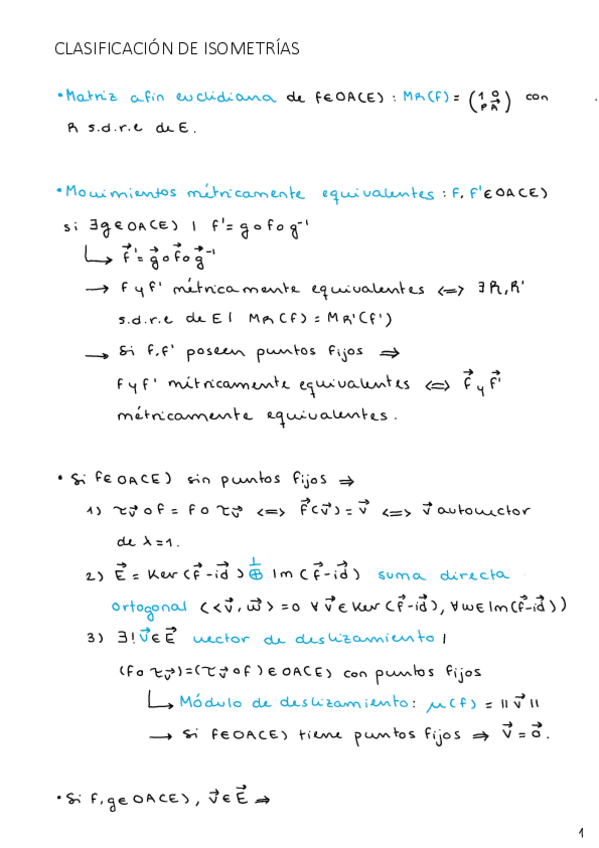 CLASIFICACIÓN DE ISOMETRÍAS
• Matriz afín euclidiana de f∈OA(E) : M_R(f) = (1 0 / P A) con
R s.d.r.e de E.
• Movimientos métricamente equivalentes : f, f'∈OA(E)
si ∃g∈OA(E) | f' = g∘f∘g⁻¹
↳ f⃗' = g⃗∘f⃗∘g⃗⁻¹
→ f y f' métricamente equivalentes <=> ∃R,R'
s.d.r.e de E | M_R(f) = M_R'(f')
→ Si f,f' poseen puntos fijos ⇒
f y f' métricamente equivalentes <=> f⃗ y f⃗'
métricamente equivalentes.
• Si f∈OA(E) sin puntos fijos ⇒
1) τ_v⃗∘f = f∘τ_v⃗ <=> f⃗(v⃗) = v⃗ <=> v⃗ autovector
de λ=1.
2) E⃗ = Ker(f⃗-id) ⊕^⊥ Im(f⃗-id) suma directa
ortogonal (<v⃗,w⃗> = 0 ∀v⃗∈Ker(f⃗-id), ∀w∈Im(f⃗-id))
3) ∃!v⃗∈E⃗ vector de deslizamiento |
(f∘τ_v⃗) = (τ_v⃗∘f)∈OA(E) con puntos fijos
↳ Módulo de deslizamiento: μ(f) = ||v⃗||
→ Si f∈OA(E) tiene puntos fijos ⇒ v⃗ = 0⃗.
• Si f,g∈OA(E), v⃗∈E⃗ ⇒
1